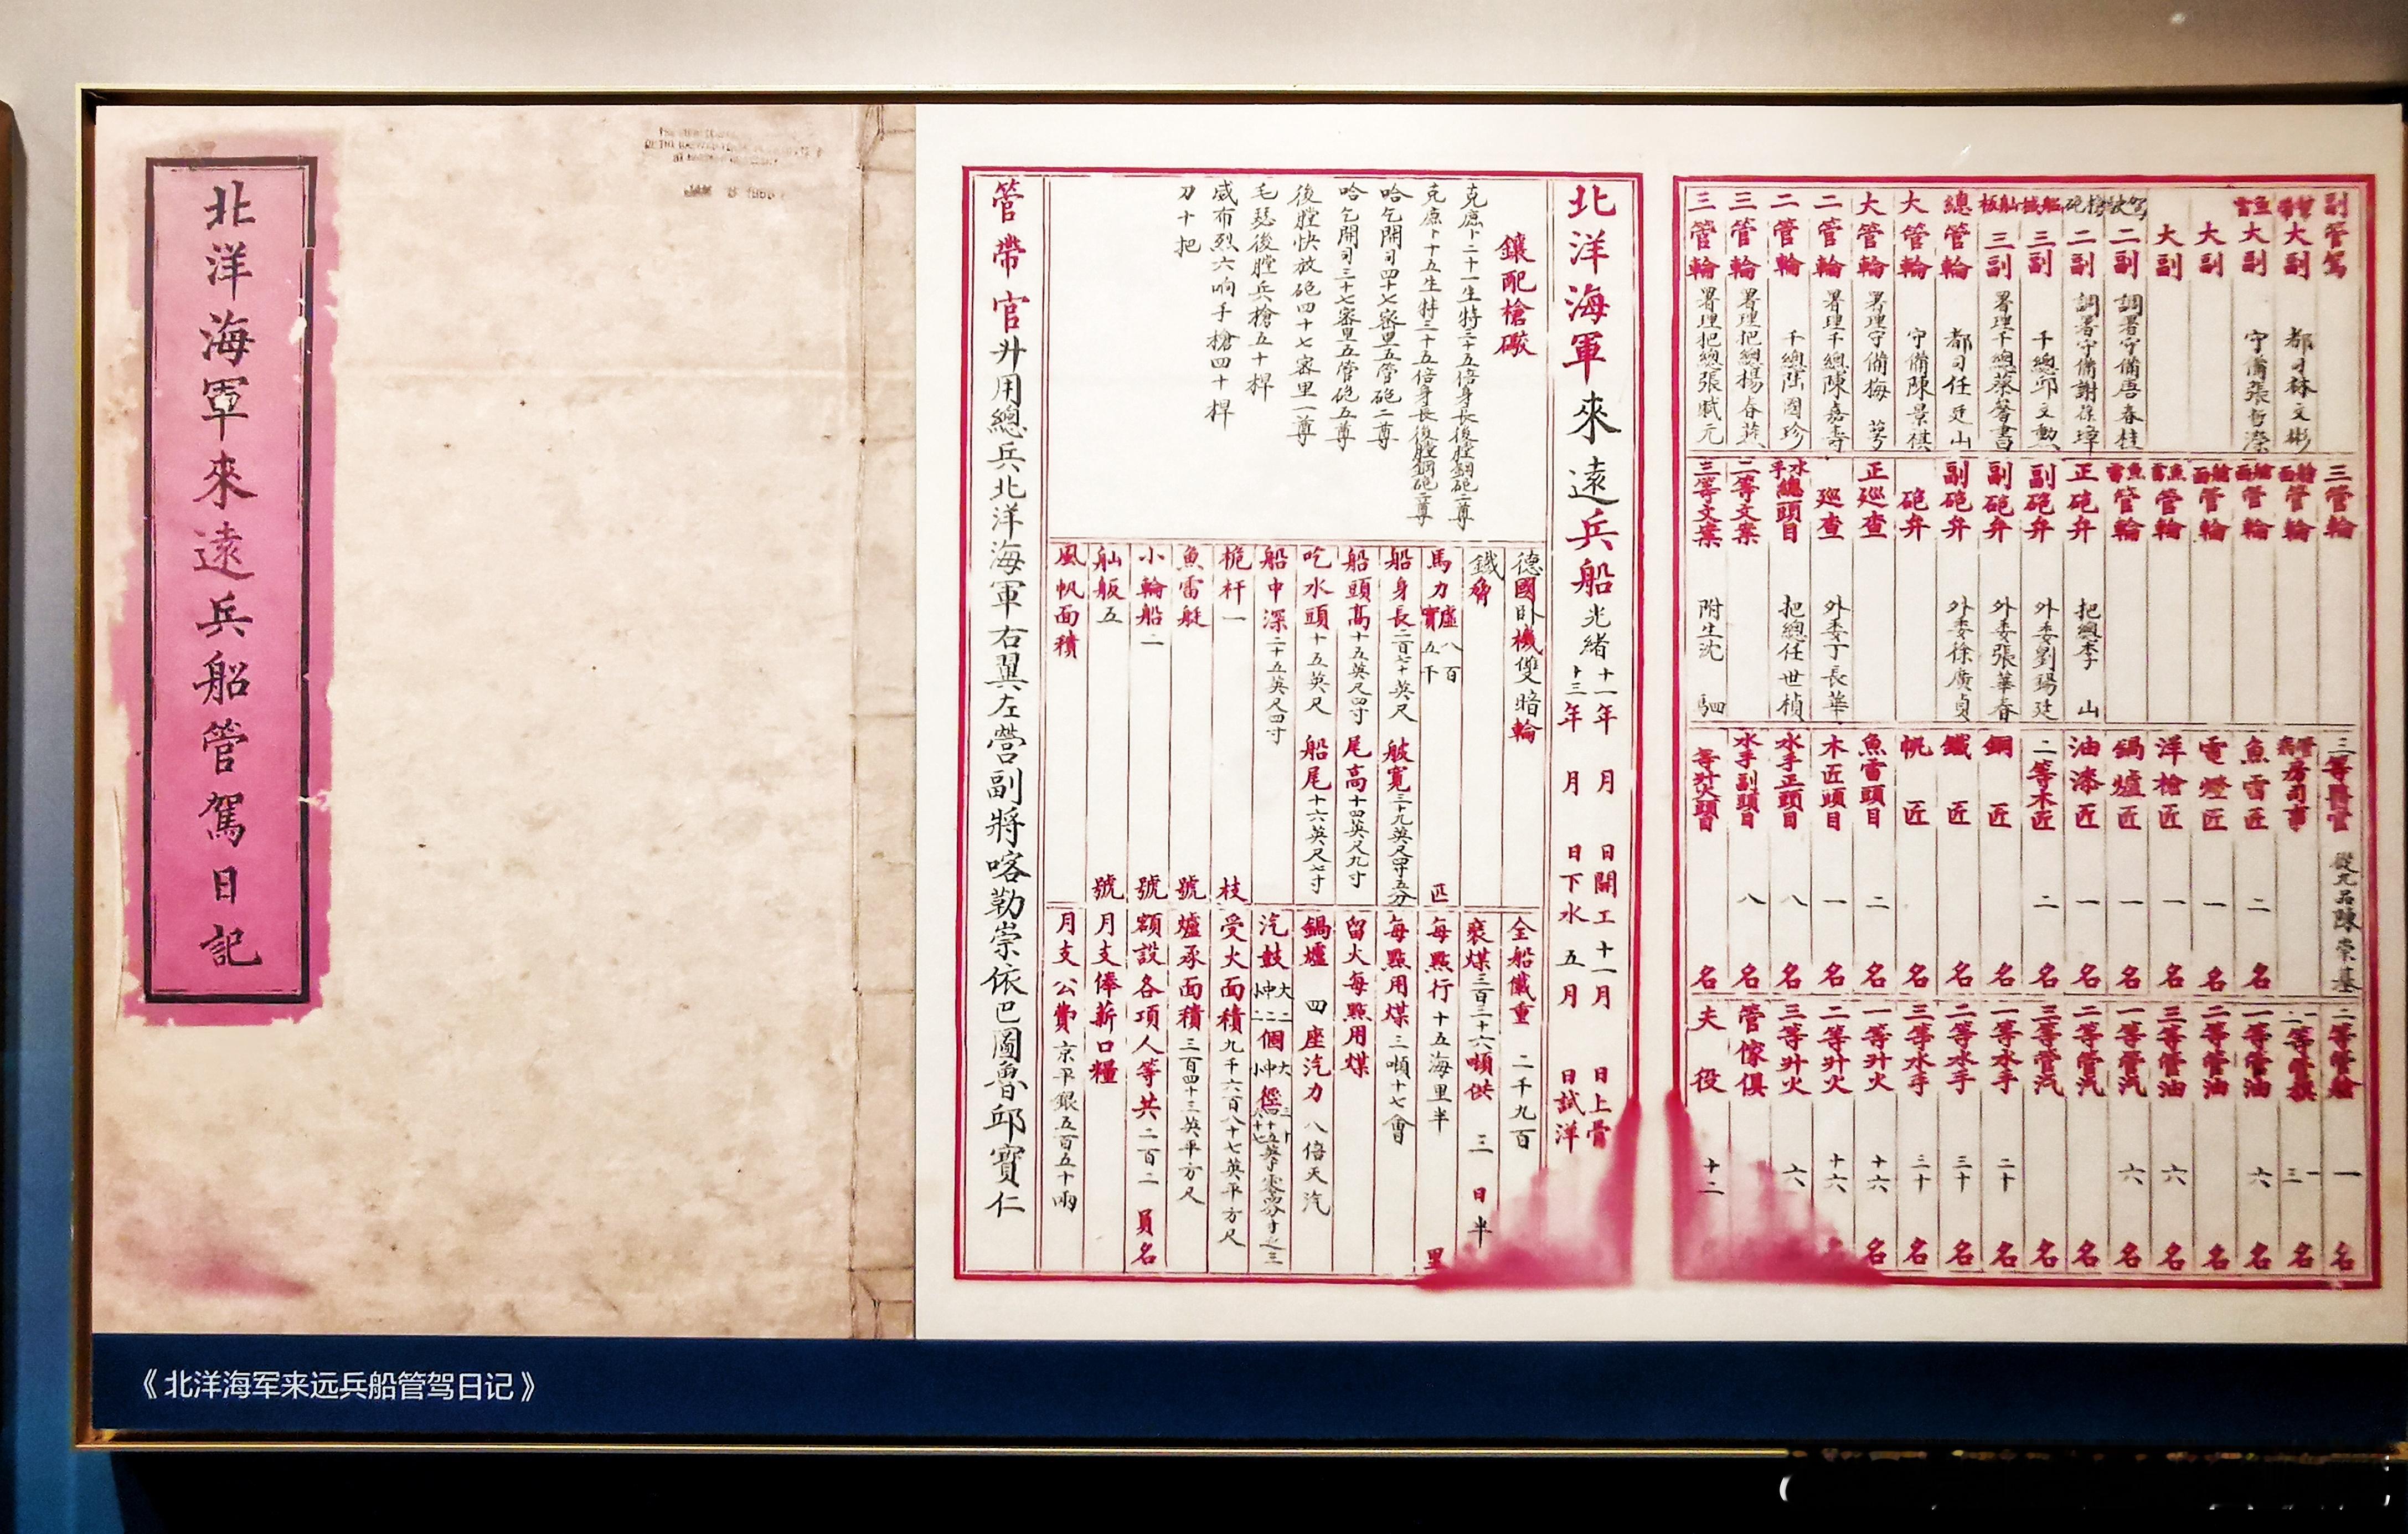 北洋海軍來遠兵船管駕日記
JAN 8
北洋海軍來遠兵船光緒
十一年 月 日開工十一月 日上骨
十三年 月 日下水五月 日試洋
鑲配槍礮
克鹿卜二十一生特三十五倍身長後膛鋼砲二尊
克鹿卜十五生特三十五倍身長後膛鋼砲二尊
哈乞開司四十七密里五管砲二尊
哈乞開司三十七密里五管砲五尊
後膛快放砲四十七密里一尊
毛瑟後膛兵槍五十桿
威布烈六响手槍四十桿
刀十把
德國臥機雙暗輪
鐵脅
馬力虛八百實五千 匹
船身長二百七十英尺 艙寬三十九英尺四寸五分
船頭高十五英尺四寸 尾高十四英尺九寸
吃水頭十五英尺 船尾十六英尺七寸
船中深二十五英尺四寸
桅杆一 枝
魚雷艇 號
小輪船二 號
舢舨五 號
風帆面積
全船儎重 二千九百
裝煤三百三十六噸供 三 日半
每點行十五海里半 里
每點用煤三噸十七會
留火每點用煤
鍋爐 四座汽力 八倍天汽
汽鼓
受火面積九千六百八十七英平方尺
爐承面積三百四十三英平方尺
額設各項人等共二百二 員名
月支俸薪口糧
月支公費京平銀五百五十兩
管帶官升用總兵北洋海軍右翼左營副將喀勒崇依巴圖魯邱寶仁
副管駕
大副 都司林文彬
魚雷大副 守備張哲溁
大副
大副
二副 調署守備唐春桂
二副 調署守備謝葆璋
三副 千總邱文勳
舢板三副 署理千總蔡馨書
總管輪 都司任廷山
大管輪 守備陳景祺
大管輪 署理守備梅萼
二管輪 署理千總陳嘉壽
二管輪 千總陳國珍
三管輪 署理把總楊春燕
三管輪 署理把總張斌元
三管輪
艙面管輪
艙面管輪
艙面管輪
魚雷管輪
魚雷管輪
正砲弁 把總李 山
副砲弁 外委劉錫廷
副砲弁 外委張華春
副砲弁 外委徐廣貞
砲弁
正巡查
巡查 外委丁長華
水手總頭目 把總任世楨
二等文案
三等文案 附生沈 駟
三等醫官 從九品陳崇基
魚雷匠 二 名
電燈匠 一 名
洋槍匠 一 名
鍋爐匠 一 名
油漆匠 一 名
二等木匠 二 名
銅匠 名
鐵匠 名
帆匠 名
魚雷頭目 二 名
木匠頭目 一 名
水手正頭目 八 名
水手副頭目 八 名
一等管油 六 名
二等管油 名
三等管油 六 名
一等管汽 六 名
二等管汽 名
三等管汽 名
一等水手 二十 名
二等水手 三十 名
三等水手 三十 名
一等升火 十六 名
二等升火 十六
三等升火 六
管傢俱
夫役 十二
《北洋海军来远兵船管驾日记》